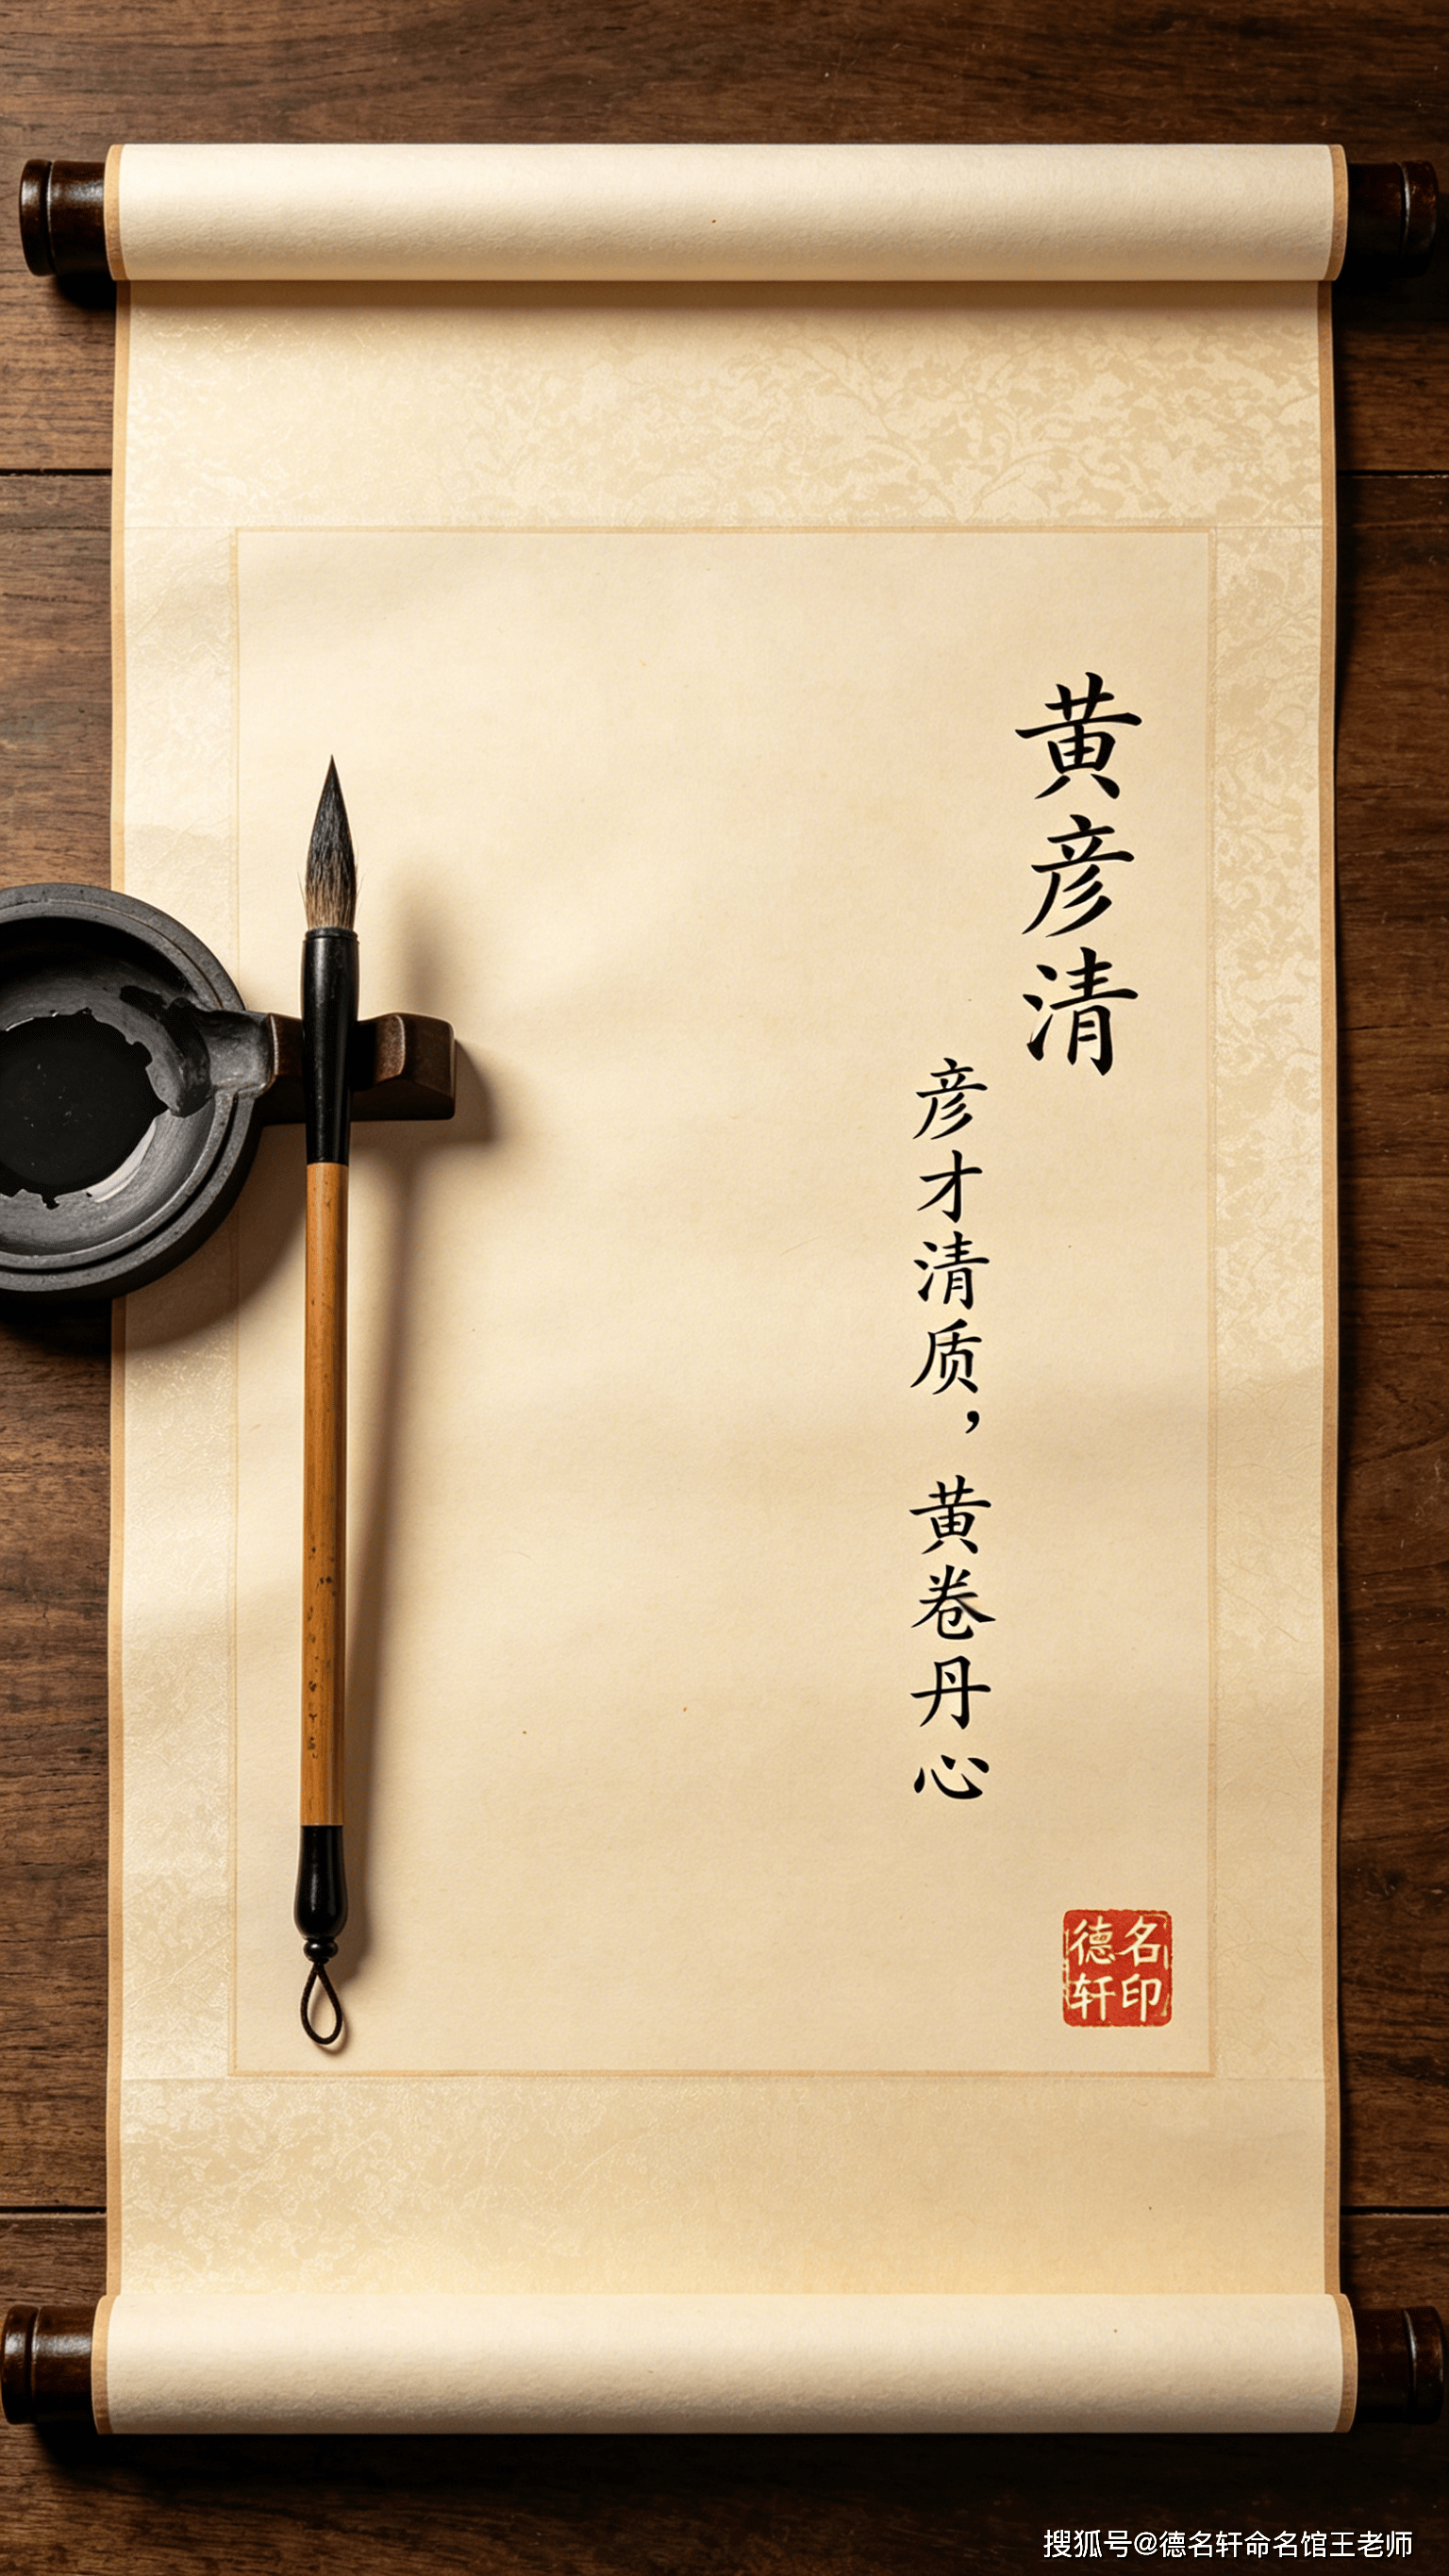 黄彦清
彦才清质，黄卷丹心
德名
轩印
搜狐号@德名轩命名馆王老师